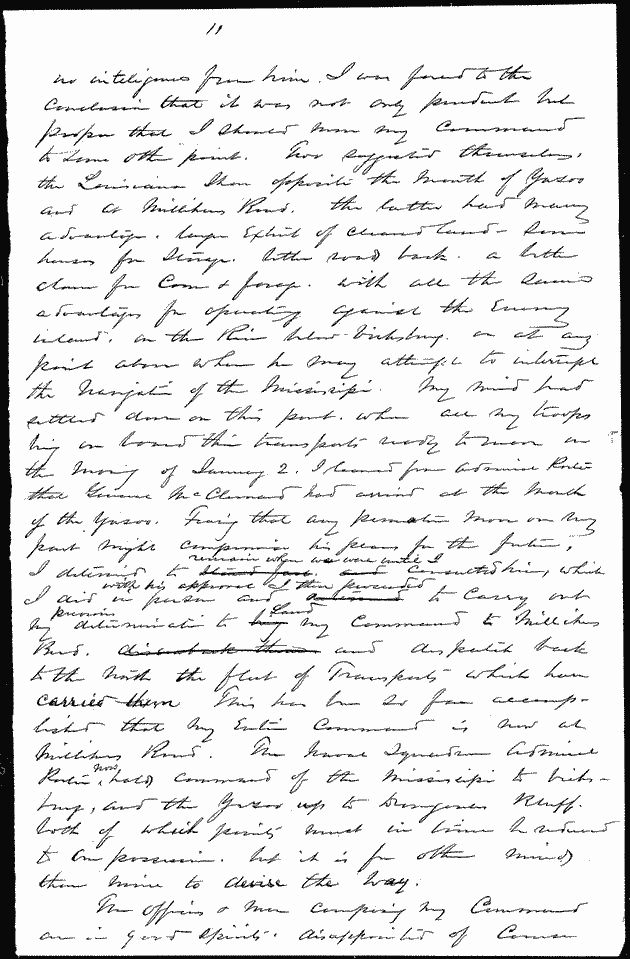 11
no inteligence from him. I was forced to the
conclusion that it was not only prudent but
proper that I should move my command
to some other point. Two suggested themselves.
the Louisiana Shore opposite the mouth of Yazoo
and at Millikens Bend. the latter had many
advantages. large Extent of cleared land - some
houses for storage. better roads back. a better
chance for Corn & forage. with all the same
advantages for operating against the Enemy
inland. on the River below Vicksburg. or at any
point above where he may attempt to interrupt
the Navigation of the Mississippi. My mind had
settled down on this point. when all my troops
being on board their transports ready to move on
the morning of January 2. I learned from Admiral Porter
that General McClernand had arrived at the Mouth
of the Yazoo. Fearing that any premature move on my
part might compromise his plans for the future,
remain where we were until I
I determined to consulted him, which
with his approval I then proceeded
I did in person and to carry out
previous Land
my determination to my Command to Millikens
Bend. disembark them and despatch back
to the North the fleet of Transports which have
carried them This has been so far accomp-
lished that my Entire Command is now at
Millikens Bend. The Naval Squadron Admiral
now
Porter, holds command of the Mississippi to Vicks-
burg, and the Yazoo up to Drumgoulds Bluff.
both of which points must in time be reduced
to our possession. but it is for other minds
than mine to devise the way.
The officers & men composing my Command
are in good spirits. disappointed of Course